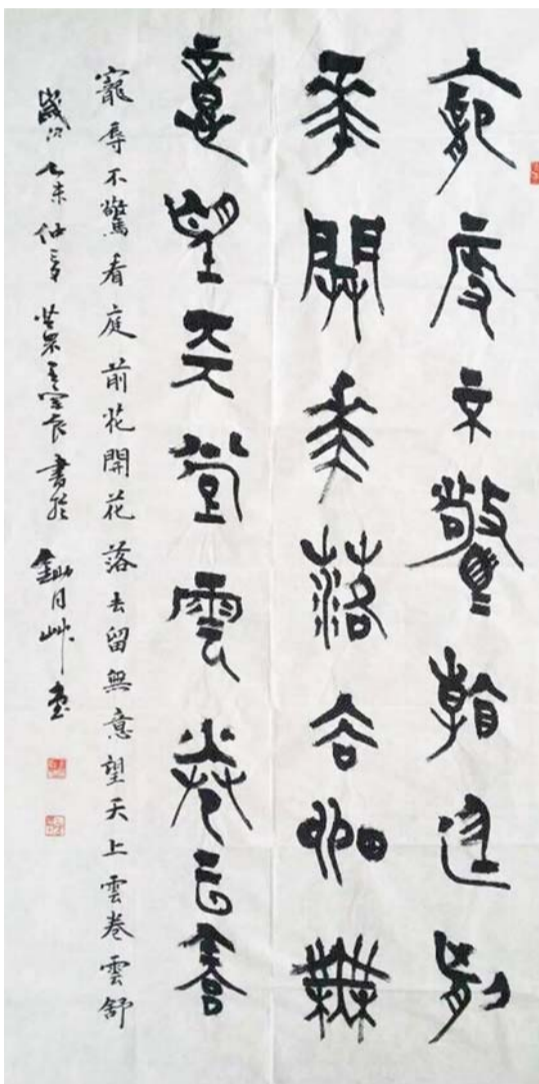 寵辱不驚看庭前
花開花落去留無
意望天雲卷云舒
寵辱不驚看庭前花開花落去留無意望天上雲卷雲舒
歲次乙未仲夏書於月艸堂